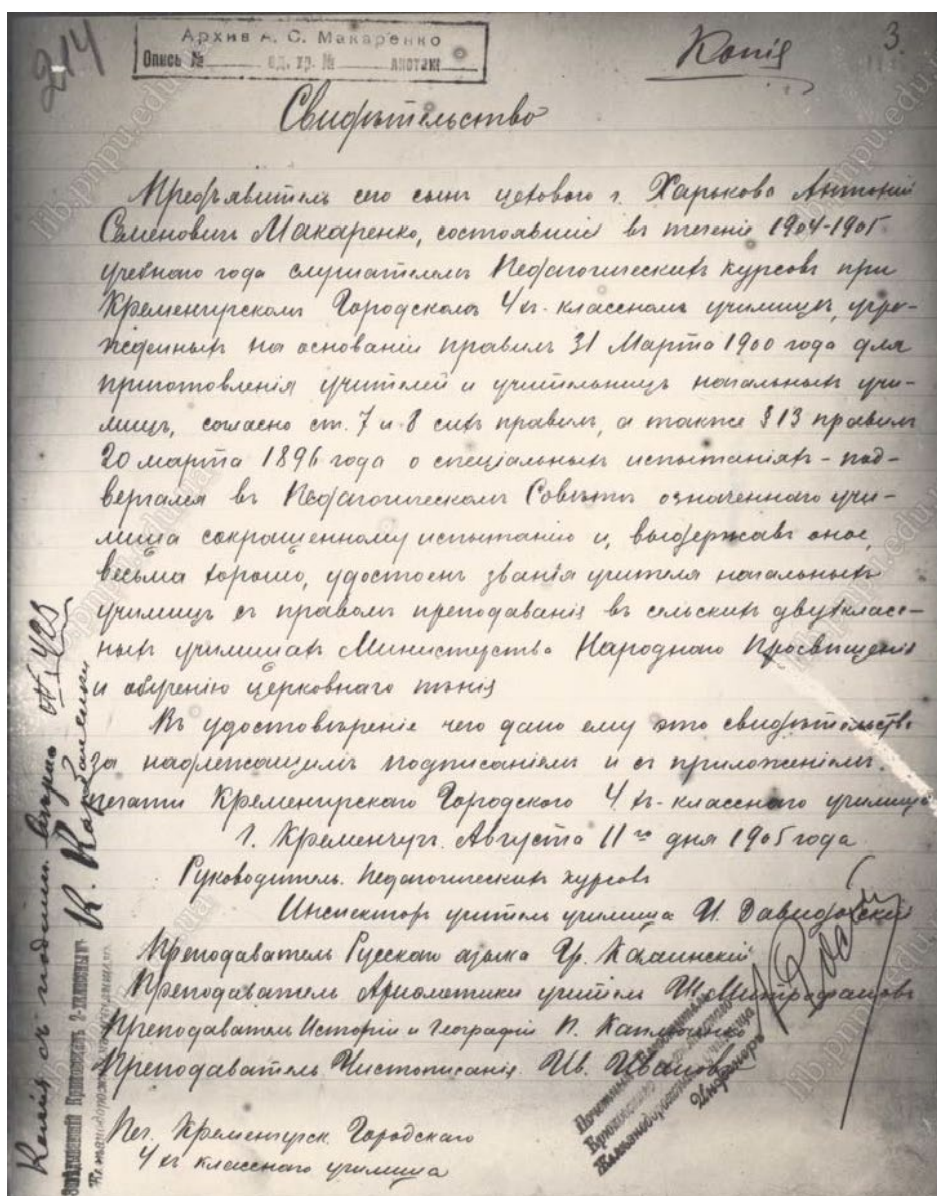 214
Архив А. С. Макаренко
Опись № ед. хр. № листах
Копія
3.
Свидѣтельство
Предъявитель сего сынъ цехового г. Харькова Антоній
Семеновичъ Макаренко, состоявшій въ теченіе 1904-1905
учебнаго года слушателемъ Педагогическихъ курсовъ при
Кременчугскомъ Городскомъ 4хъ-классномъ училищѣ, учре-
жденныхъ на основаніи правилъ 31 Марта 1900 года для
приготовленія учителей и учительницъ начальныхъ учи-
лищъ, согласно ст. 7 и 8 сихъ правилъ, а также § 13 правилъ
20 марта 1896 года о спеціальныхъ испытаніяхъ - под-
вергался въ Педагогическомъ Совѣтѣ означеннаго учи-
лища сокращенному испытанію и, выдержавъ оное,
весьма хорошо, удостоенъ званія учителя начальныхъ
училищъ съ правомъ преподаванія въ сельскихъ двухкласс-
ныхъ училищахъ Министерства Народнаго Просвѣщенія
и обученію церковнаго пѣнія
Въ удостовѣреніе чего дано ему это свидѣтельство
за надлежащимъ подписаніемъ и съ приложеніемъ
печати Кременчугскаго Городского 4хъ-класснаго училища
Г. Кременчугъ. Августа 11го дня 1905 года
Руководитель Педагогическихъ курсовъ
Инспекторъ учитель училища И. Давидовскій
Преподаватель Русскаго языка Гр. Каминскій
Преподаватель Ариѳметики учитель Митрофановъ
Преподаватель Исторіи и Географіи П.
Преподаватель Чистописанія Ив. Ивановъ
Печ. Кременчугск. Городскаго
4хъ классного училища
Копія съ подлин. вѣрна
Завѣдывающій Крюковскимъ 2-хкласснымъ
Желѣзнодорожнымъ училищемъ
К.
Почетный Блюститель
Крюковскаго
Желѣзнодорожнаго училища
Инженеръ
lib.pnpu.edu.ua